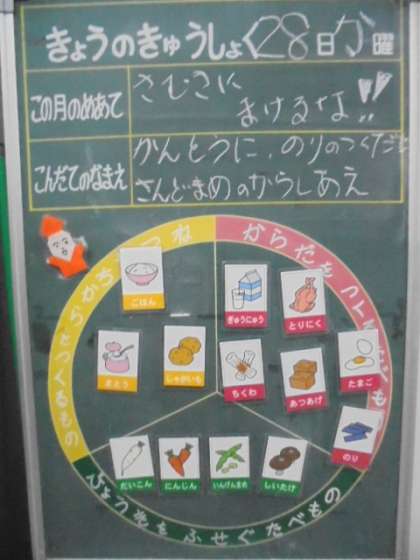 きょうのきゅうしょく28日か曜
この月のめあて
さむさに
まけるな!!
こんだてのなまえ
かんとうに、のりのつくだに
さんどまめのからしあえ
ごはん
さとう
じゃがいも
ぎゅうにゅう
とりにく
ちくわ
あつあげ
たまご
のり
だいこん
にんじん
いんげんまめ
しいたけ
からだをつくる
びょう気をふせぐたべもの